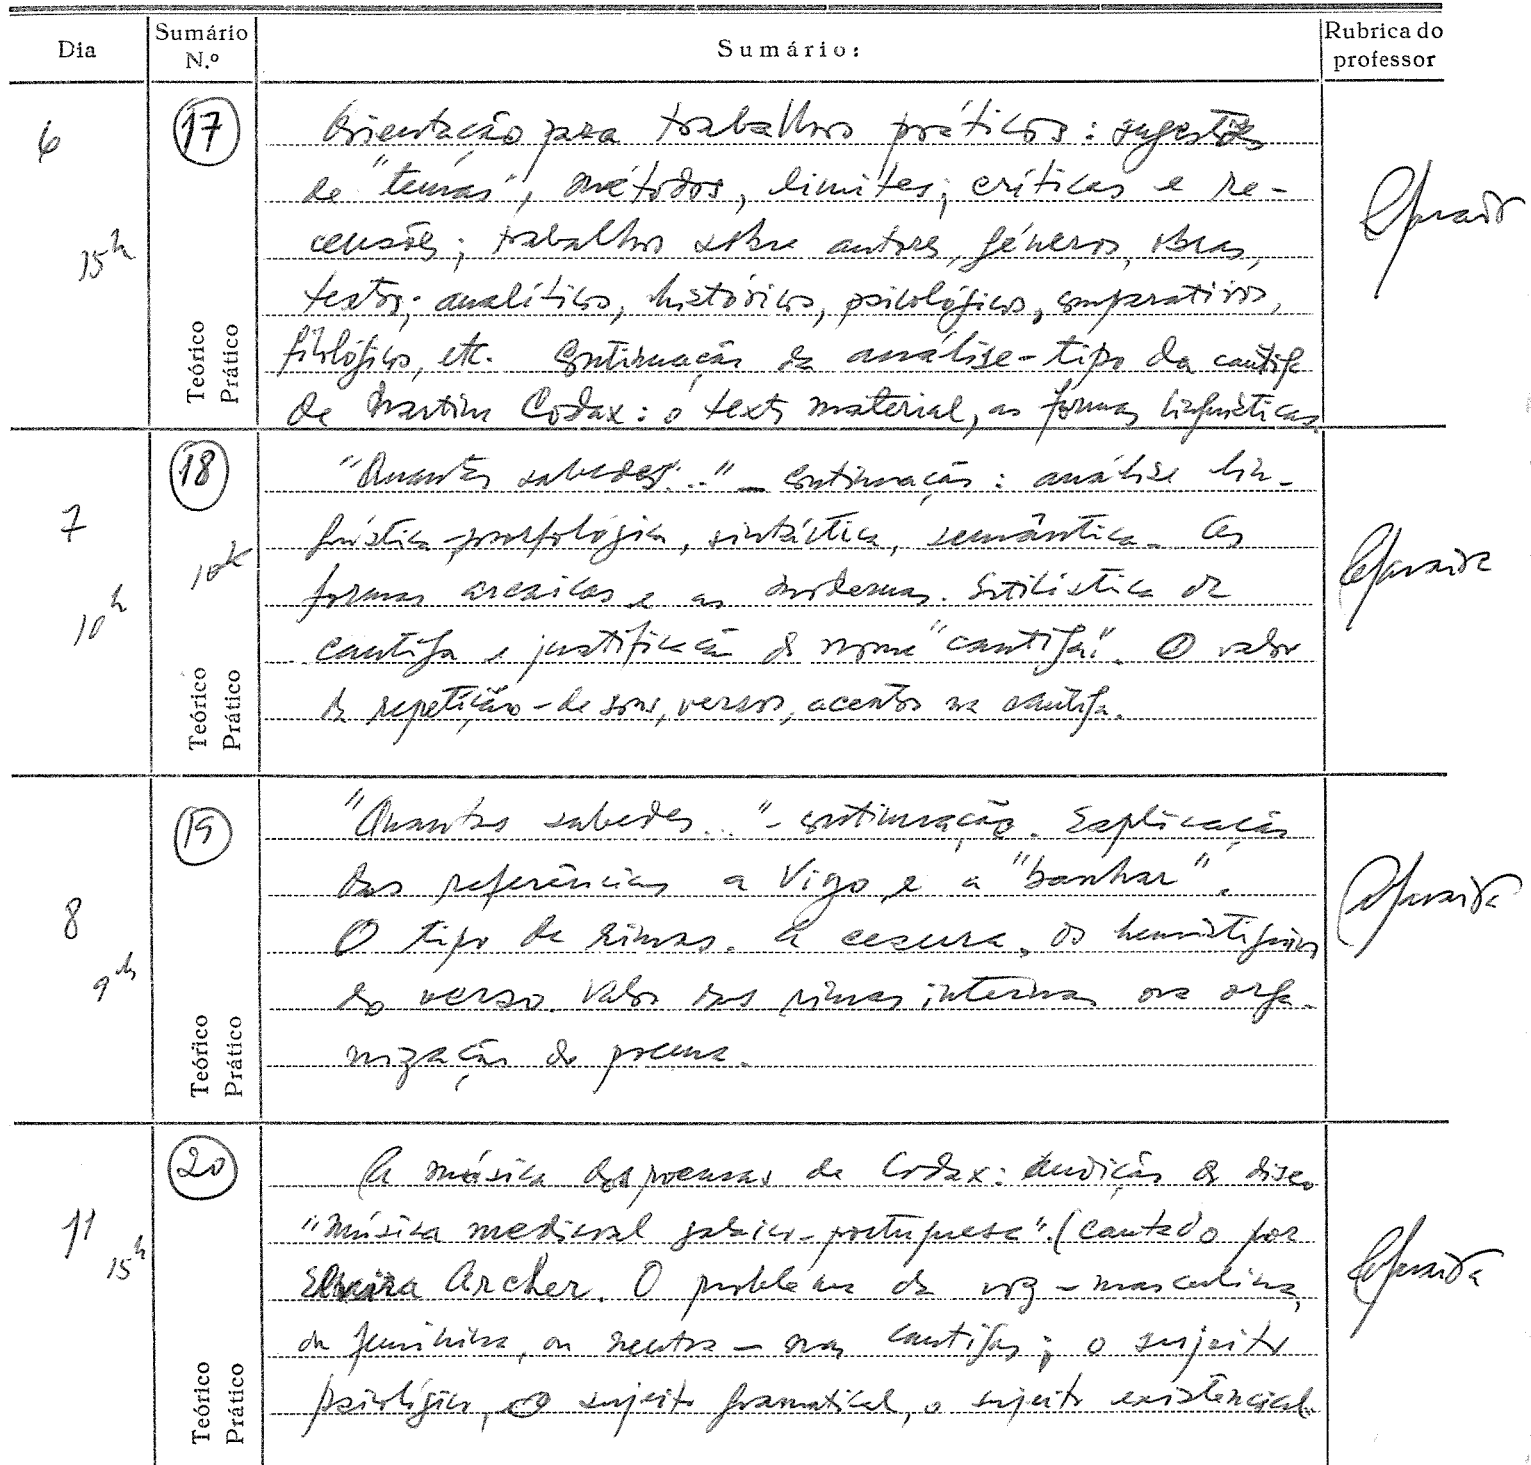 Dia
Sumário N.º
Sumário:
Rubrica do professor
6
15h
17
Teórico
Prático
Orientação para trabalhos práticos: sugestões
de "temas", métodos, limites; críticas e re-
censões; trabalhos sôbre autores, géneros, obras,
textos; analíticos, históricos, psicológicos, comparativos,
filológicos, etc. Continuação da análise-tipo da cantiga
de Martin Codax: o texto material, as formas linguísticas.
7
10h
18
Teórico
Prático
"Quantas sabedes..." – continuação: análise lin-
guística-morfológica, sintáctica, semântica. As
formas arcaicas e as modernas. Estilística da
cantiga e justificação do nome "cantiga". O valor
da repetição – de sons, versos, acentos na cantiga.
8
9h
19
Teórico
Prático
"Quantas sabedes..." – continuação. Explicação
das referências a Vigo e a "banhar".
O tipo de rimas. A cesura. Os hemistíquios
do verso. Valor das rimas internas na orga-
nização do poema.
11
15h
20
Teórico
Prático
A música dos poemas de Codax: audição do disco
"Música medieval galaico-portuguesa" (cantado por
Archer. O problema da voz – masculina,
ou feminina, ou neutra – nas cantigas; o sujeito
psicológico, o sujeito gramatical, o sujeito existencial.